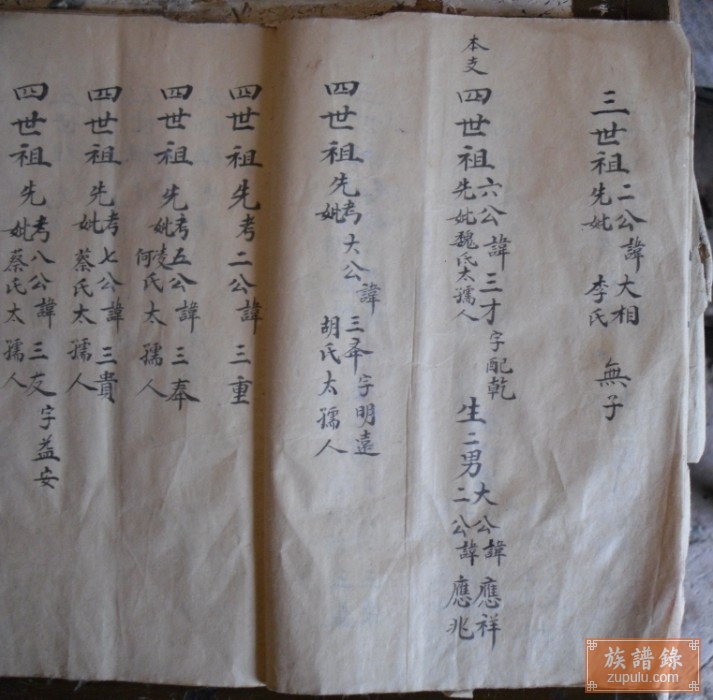 三世祖二公諱大相 無子
先妣李氏
本支
四世祖六公諱三才字配乾 生二男大公諱應祥
先妣魏氏太孺人 二公諱應兆
四世祖先考大公諱三 字明遠
妣胡氏太孺人
四世祖先考二公諱三重
四世祖先考五公諱三奉
妣何凌氏太孺人
四世祖先考七公諱三貴
妣蔡氏太孺人
四世祖先考八公諱三友字益安
妣蔡氏太孺人
族譜錄
zupulu.com